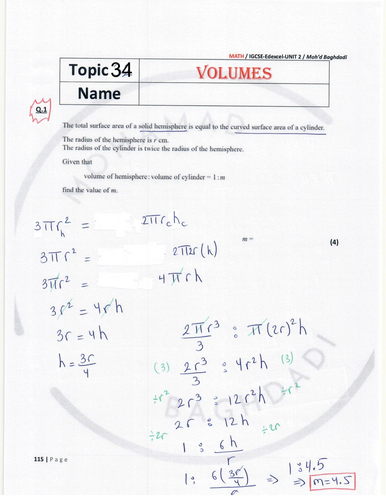 MATH / IGCSE-Edexcel-UNIT 2 / Moh'd Baghdadi
Topic 34
VOLUMES
Name
Q.1
The total surface area of a solid hemisphere is equal to the curved surface area of a cylinder.
The radius of the hemisphere is r cm.
The radius of the cylinder is twice the radius of the hemisphere.
Given that
volume of hemisphere : volume of cylinder = 1 : m
find the value of m.
3πr_h² = 2πr_c h_c
m =
(4)
3πr² = 2π2r(h)
3πr² = 4πrh
3r² = 4rh
3r = 4h
h = 3r/4
2πr³/3 : π(2r)²h
(3) 2r³/3 : 4r²h (3)
÷r² 2r³ : 12r²h ÷r²
÷2r 2r : 12h ÷2r
1 : 6h/r
1 : 6(3r/4)/r ⇒ 1 : 4.5 ⇒ m = 4.5
115 | Page
MOHAMAD BAGHDADI